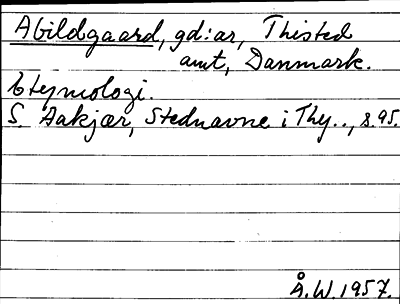 Abildgaard, gd:ar, Thisted
amt, Danmark.
Etymologi.
S. Aakjær, Stednavne i Thy.., s.95.
Å.W.1957.